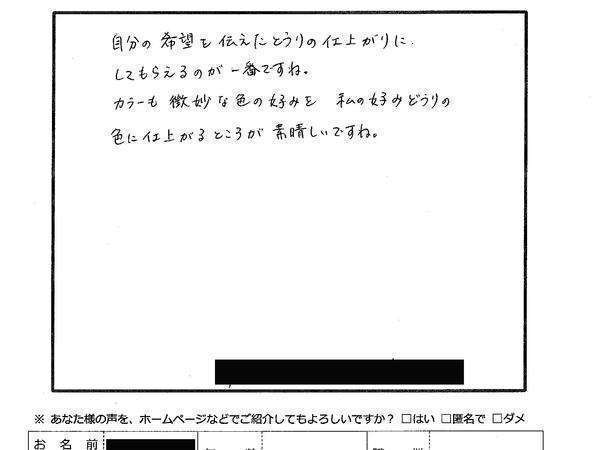 自分の希望を伝えたとうりの仕上がりに
してもらえるのが一番ですね。
カラーも微妙な色の好みを 私の好みどうりの
色に仕上がるところが素晴しいですね。
※ あなた様の声を、ホームページなどでご紹介してもよろしいですか？ □はい □匿名で □ダメ
お 名 前